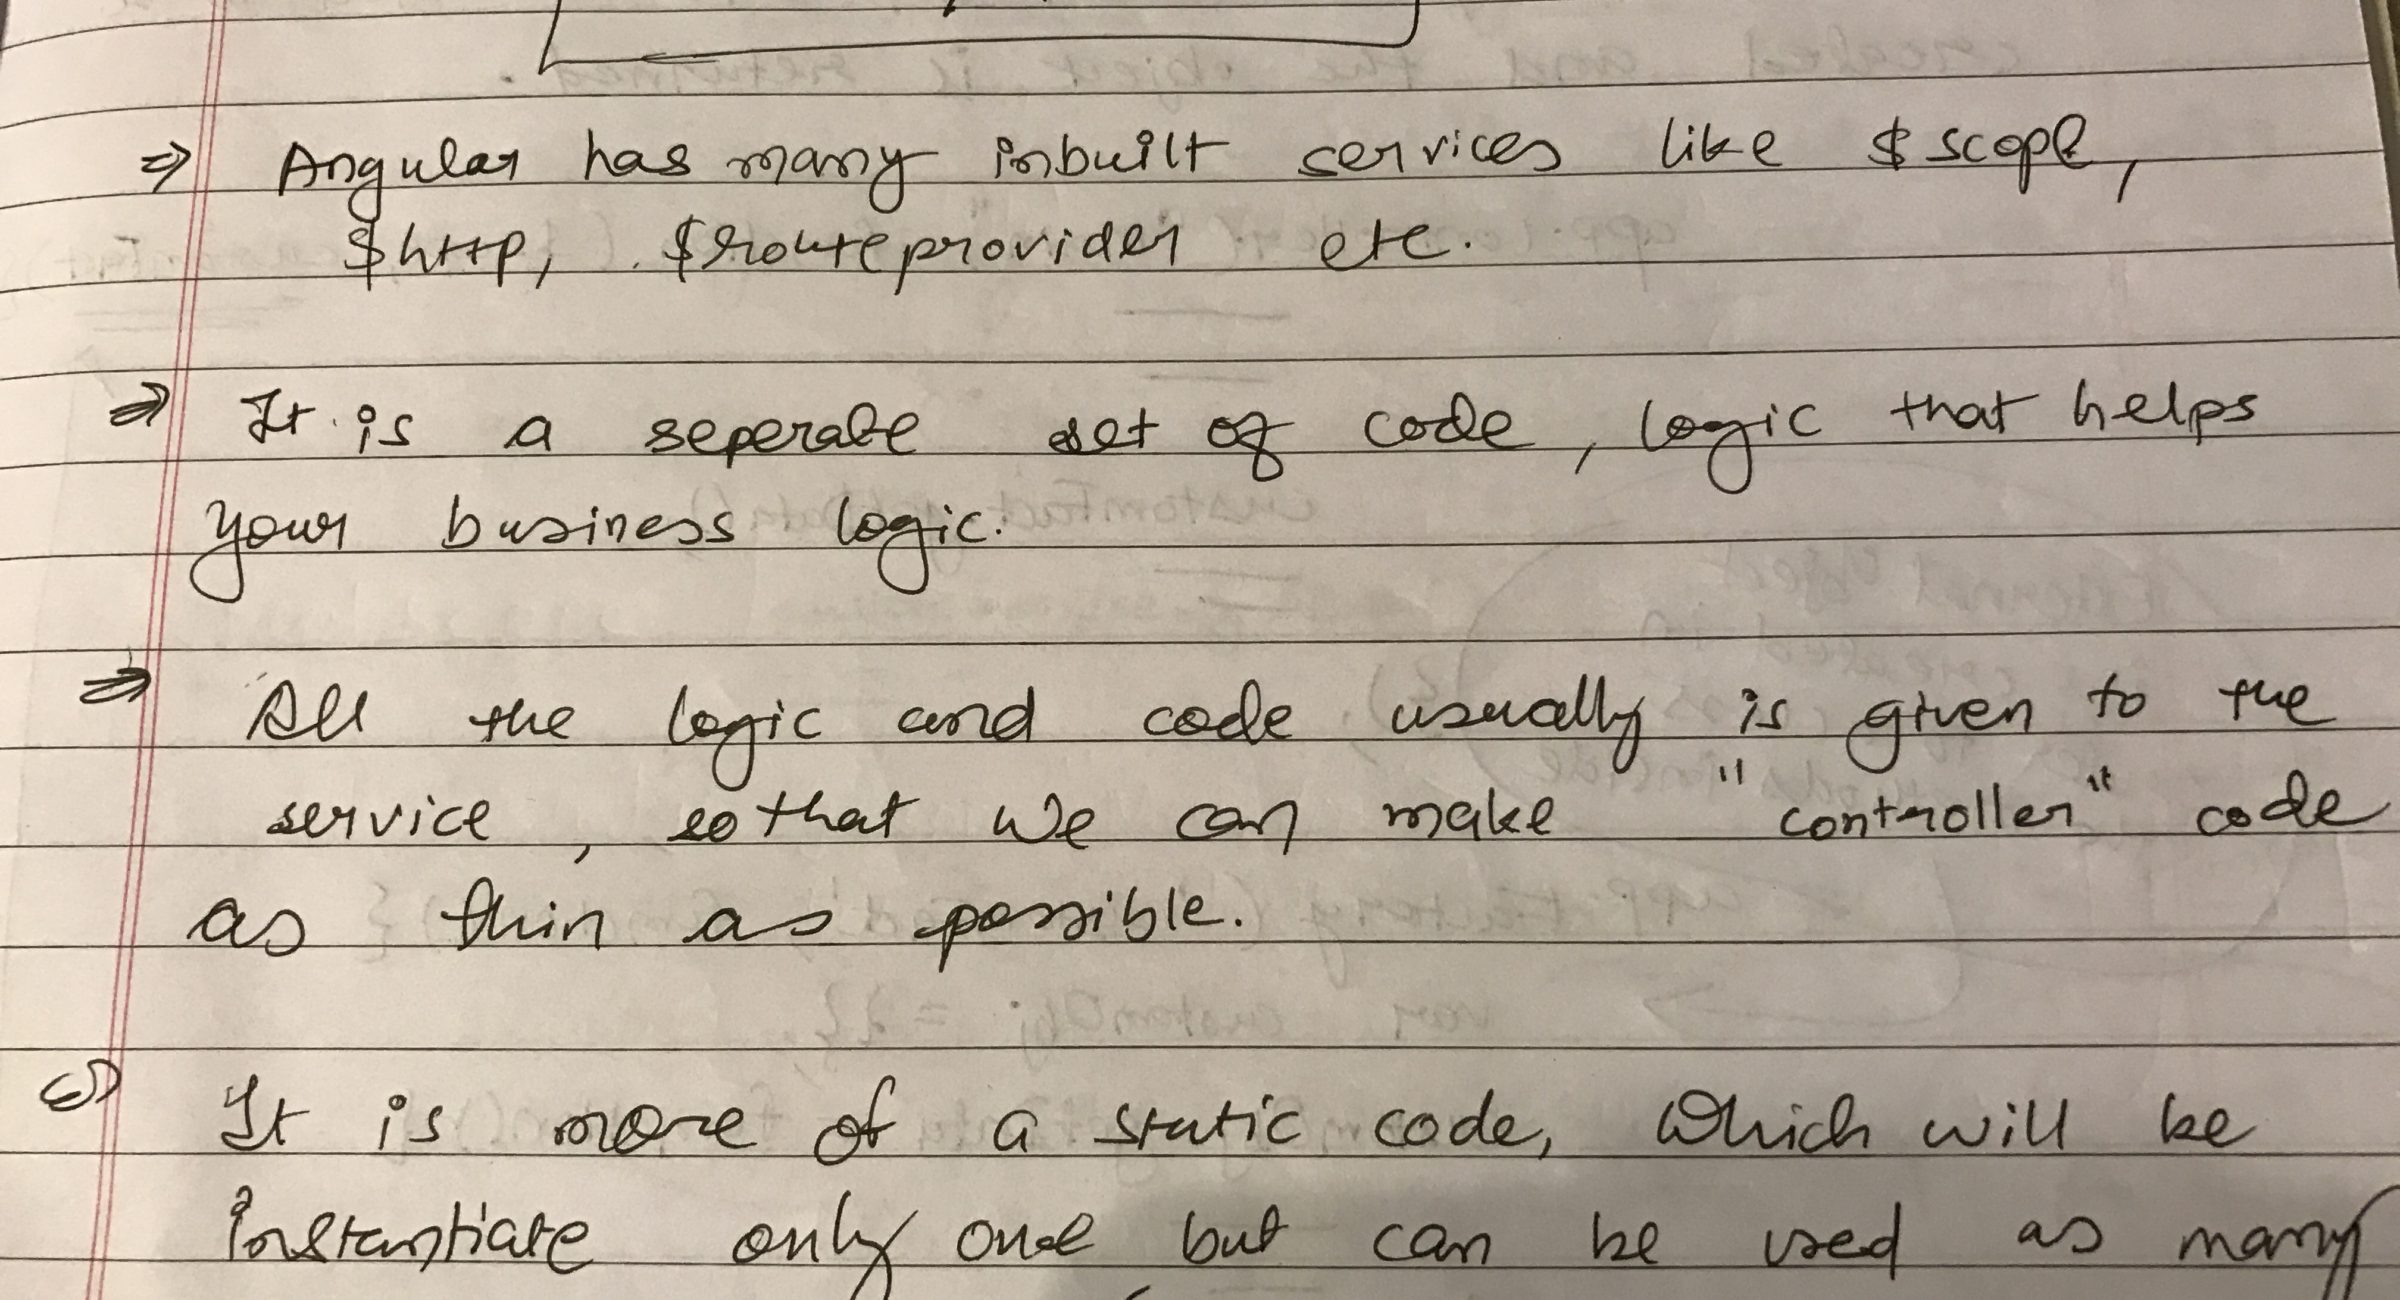 ⇒ Angular has many inbuilt services like $scope,
$http, $routeprovider etc.
⇒ It is a seperate set of code, logic that helps
your business logic.
⇒ All the logic and code usually is given to the
service, so that we can make "controller" code
as thin as possible.
⇒ It is more of a static code, which will be
instantiate only one but can be used as many